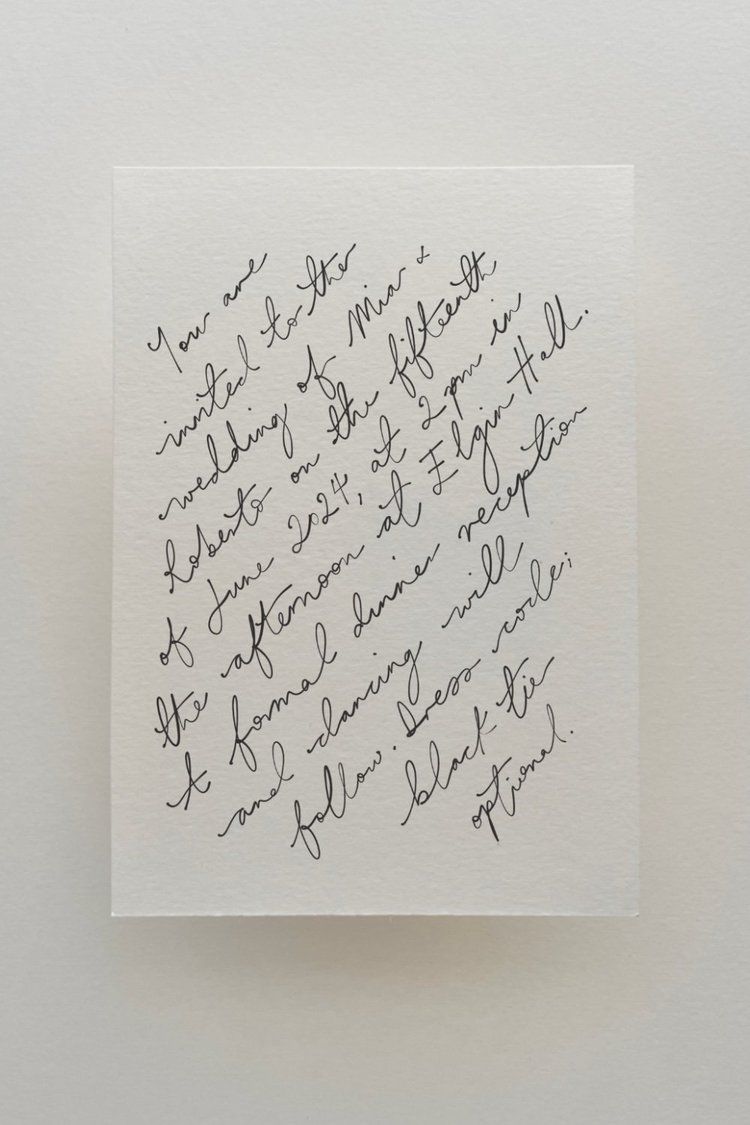 You are
invited to the
wedding of Mia &
Roberto on the fifteenth
of June 2024, at 2pm in
the afternoon at Elgin Hall.
A formal dinner reception
and dancing will
follow. Dress code:
black tie
optional.